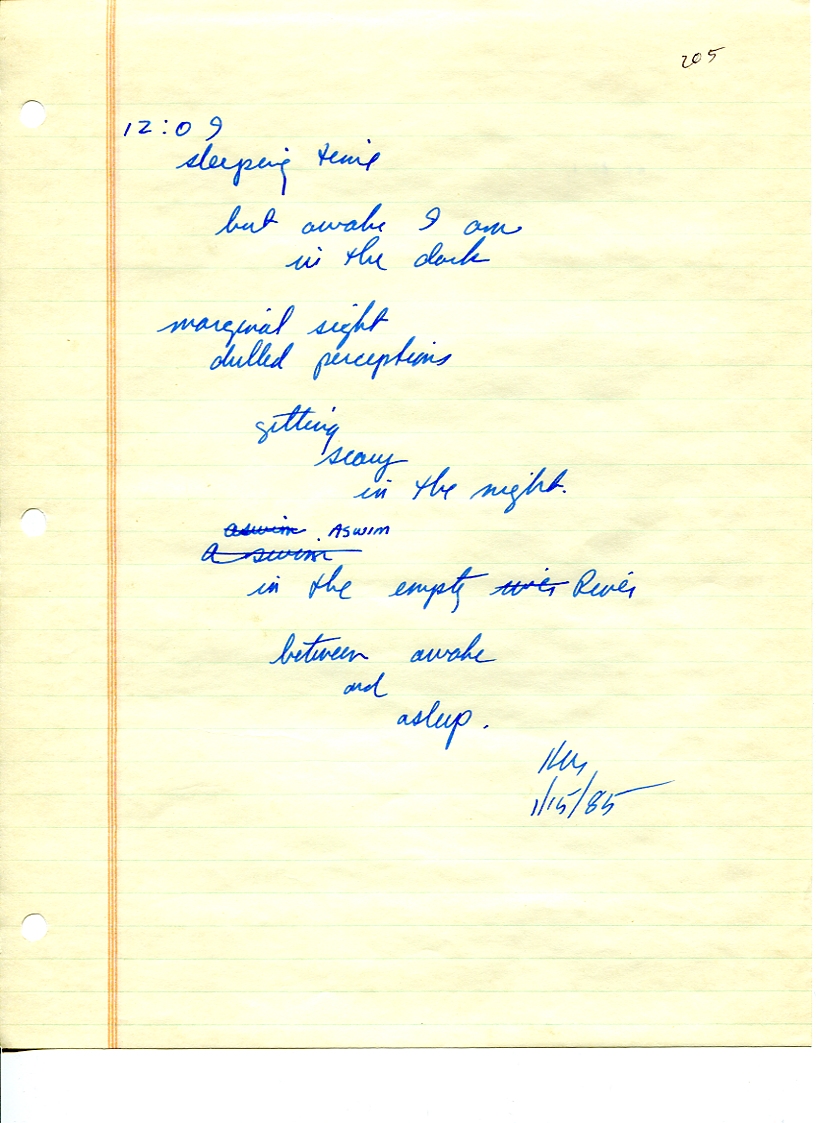 205
12:09
sleeping time
but awake I am
in the dark
marginal sight
dulled perceptions
getting
scary
in the night.
aswim. ASWIM
a swim
in the empty river River
between awake
and
asleep.
1/15/85